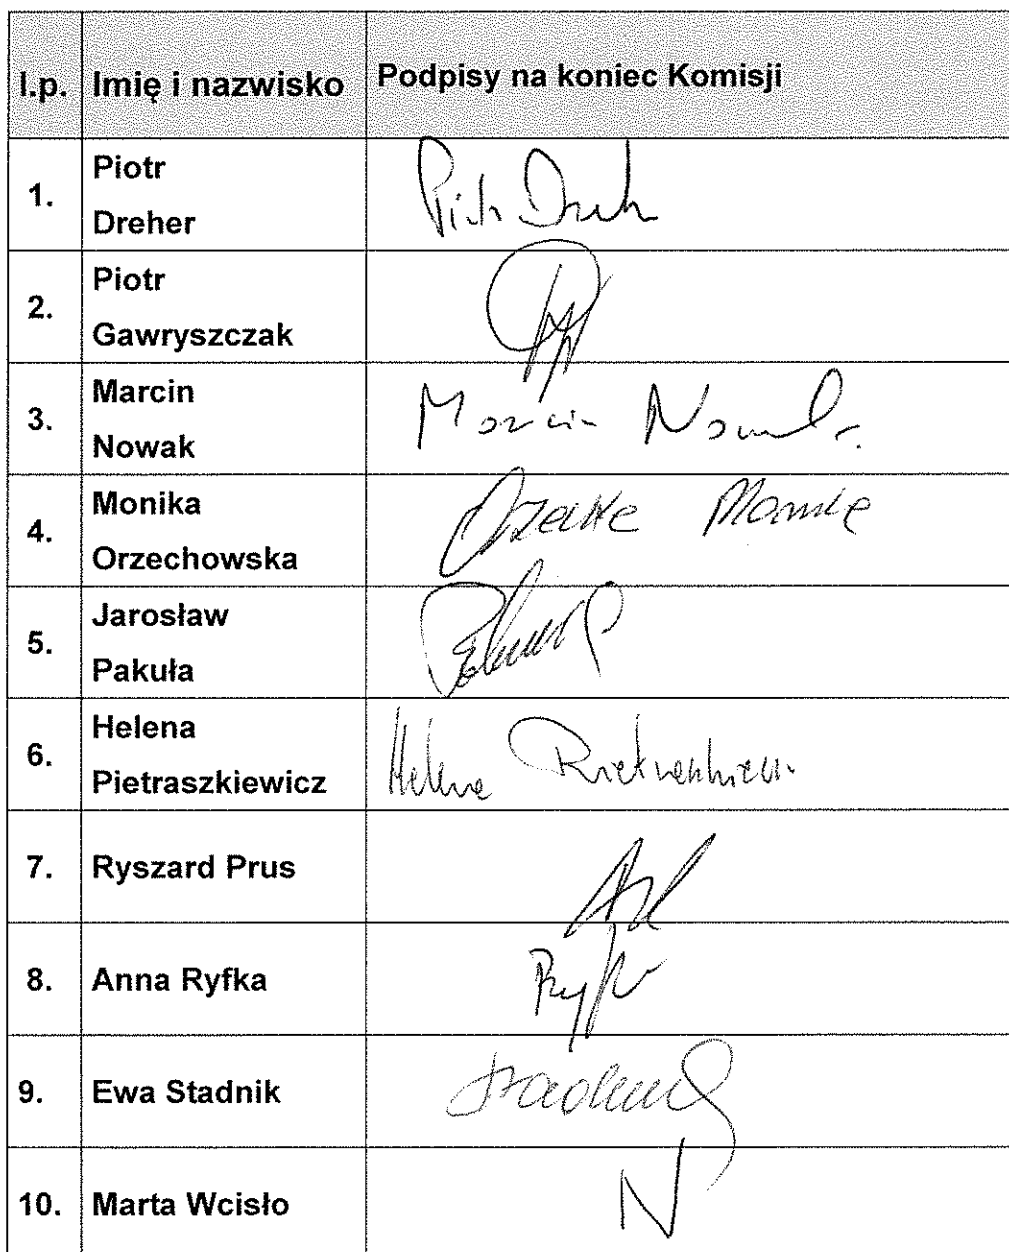 l.p. Imię i nazwisko Podpisy na koniec Komisji
1. Piotr
Dreher
Piotr Dreh
2. Piotr
Gawryszczak
3. Marcin
Nowak
Marcin Nowak
4. Monika
Orzechowska
5. Jarosław
Pakuła
6. Helena
Pietraszkiewicz
Helena
7. Ryszard Prus
8. Anna Ryfka
9. Ewa Stadnik
10. Marta Wcisło